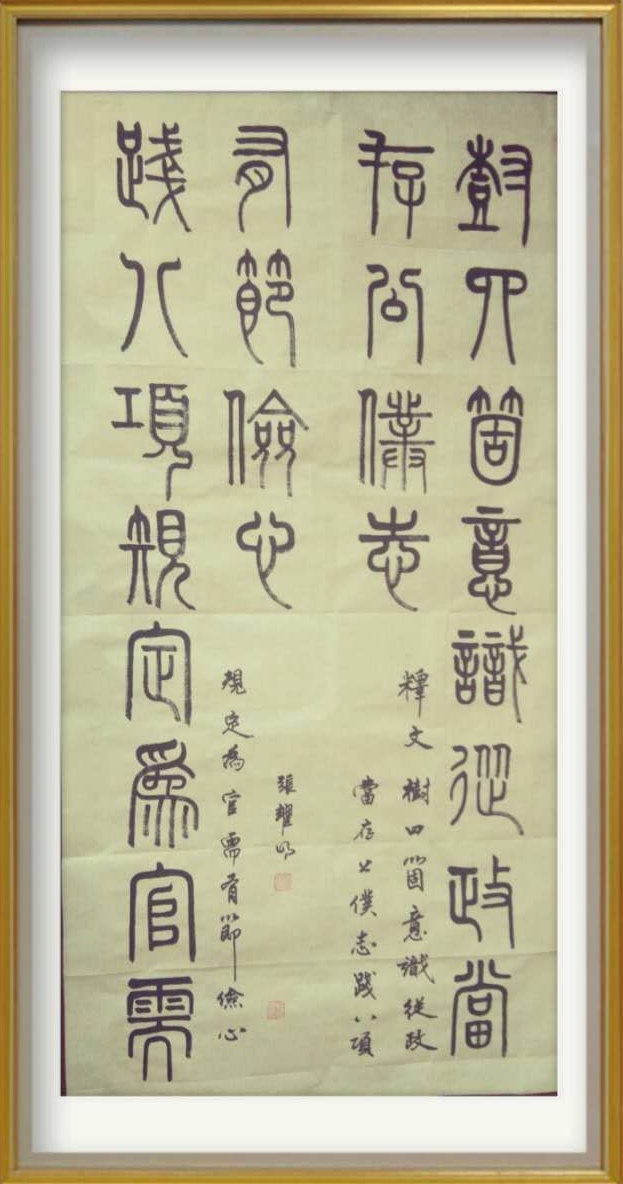 樹四箇意識從政當
存公僕志
踐八項規定為官需
有節儉心
釋文樹四箇意識從政
當存公僕志踐八項
規定為官需有節儉心
張耀明